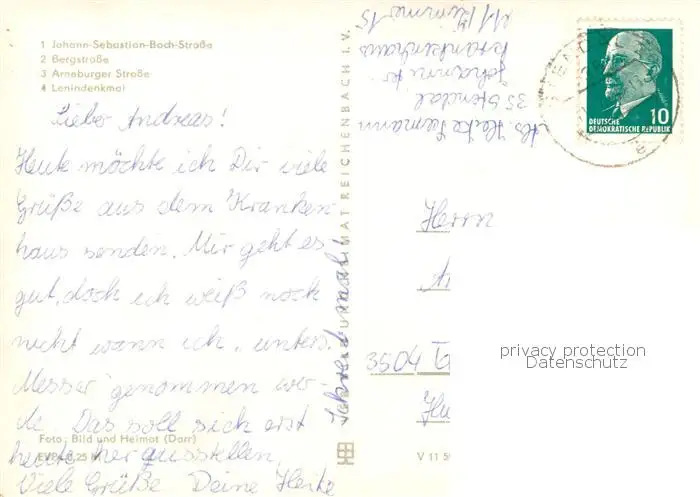 1 Johann-Sebastian-Bach-Straße
2 Bergstraße
3 Arneburger Straße
4 Lenindenkmal
Lieber Andreas!
Heute möchte ich Dir viele
Grüße aus dem Kranken
haus senden. Mir geht es
gut, doch ich weiß noch
nicht wann ich „unters
Messer" genommen wer-
de. Das soll sich erst
heute herausstellen.
Viele Grüße Deine Heike
Schreib mal!
Foto: Bild und Heimat (Darr)
BILD UND HEIMAT REICHENBACH I. V.
Abs. Heike
35 Stendal
Johanniter
krankenhaus
Zimmer 15
DEUTSCHE
DEMOKRATISCHE REPUBLIK
10
Herrn
3504
V 11 5
privacy protection
Datenschutz